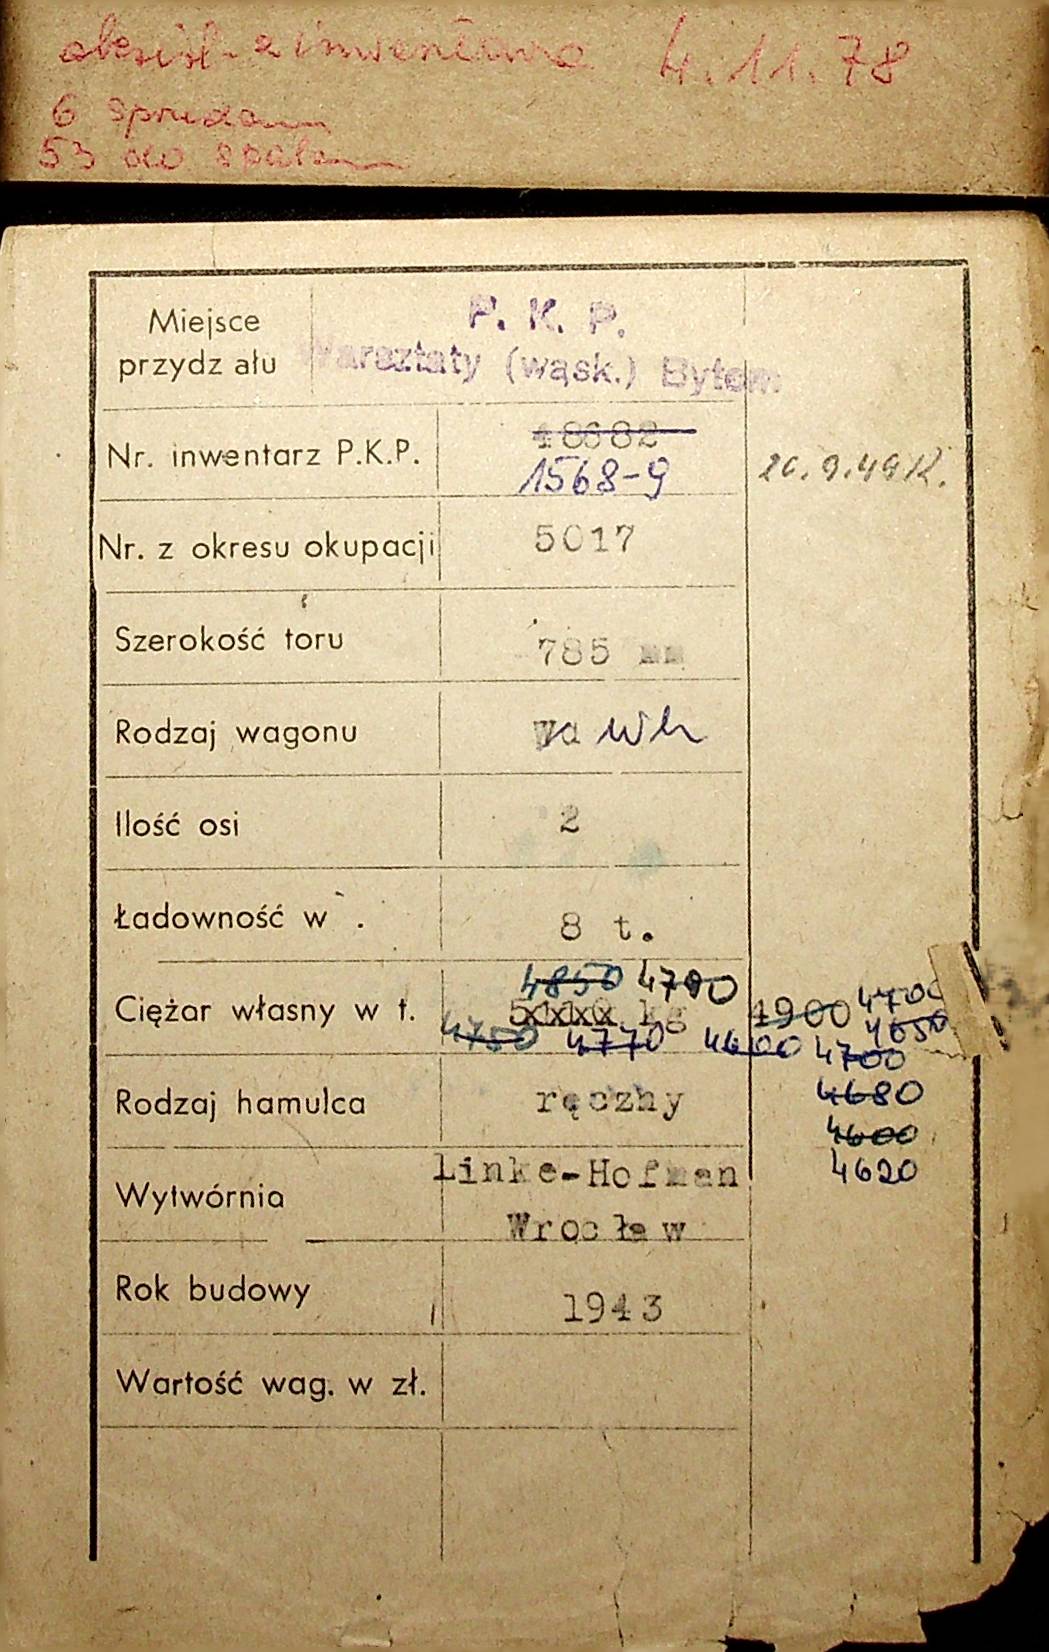 4.11.78
6
53 do
Miejsce
przydz ału
P. K. P.
Warsztaty (wąsk.) Bytom
Nr. inwentarz P.K.P.
18682
1568-9
20.9.49 R.
Nr. z okresu okupacji
5017
Szerokość toru
785 mm
Rodzaj wagonu
Wh
Ilość osi
2
Ładowność w .
8 t.
4850 4700
Ciężar własny w t.
kg
4900
4700
4650
4750 4770 4600 4700
4680
4600
4620
Rodzaj hamulca
ręczny
Wytwórnia
Linke-Hofman
Wrocław
Rok budowy
1943
Wartość wag. w zł.